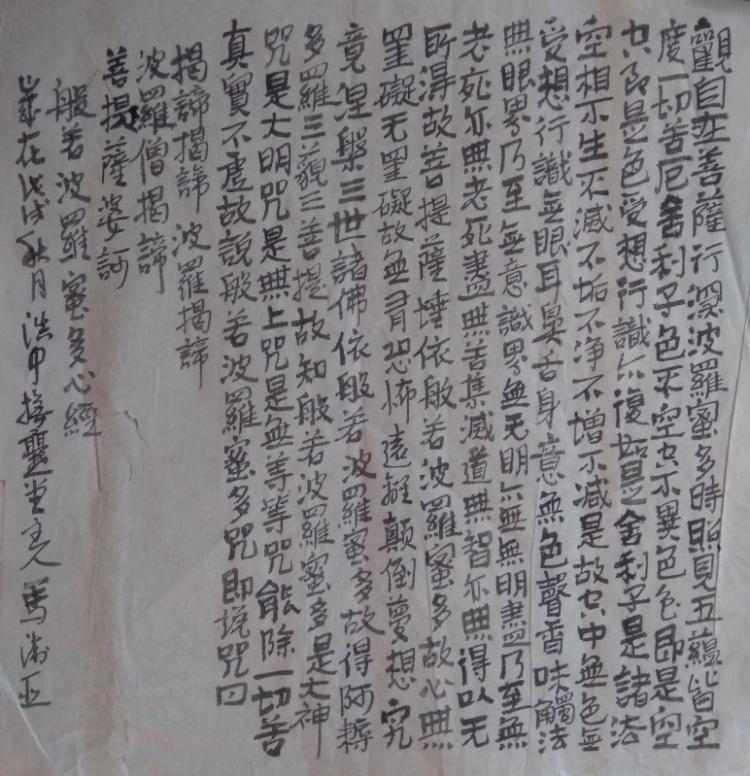 觀自在菩薩行深波羅蜜多時照見五蘊皆空
度一切苦厄舍利子色不空空不異色色即是空
空即是色受想行識亦復如是舍利子是諸法
空相不生不滅不垢不净不增不减是故空中無色無
受想行識無眼耳鼻舌身意無色聲香味觸法
無眼界乃至無意識界無无明亦無無明盡乃至無
老死亦無老死盡無苦集滅道無智亦無得以无
所得故菩提薩埵依般若波羅蜜多故心無
罣礙无罣礙故無有恐怖遠離顛倒夢想究
竟涅槃三世諸佛依般若波羅蜜多故得阿耨
多羅三藐三菩提故知般若波羅蜜多是大神
咒是大明咒是無上咒是無等等咒能除一切苦
真實不虛故說般若波羅蜜多咒即說咒曰
揭諦揭諦 波羅揭諦
波羅僧揭諦
菩提薩婆訶
般若波羅蜜多心經
歲在戊戌秋月